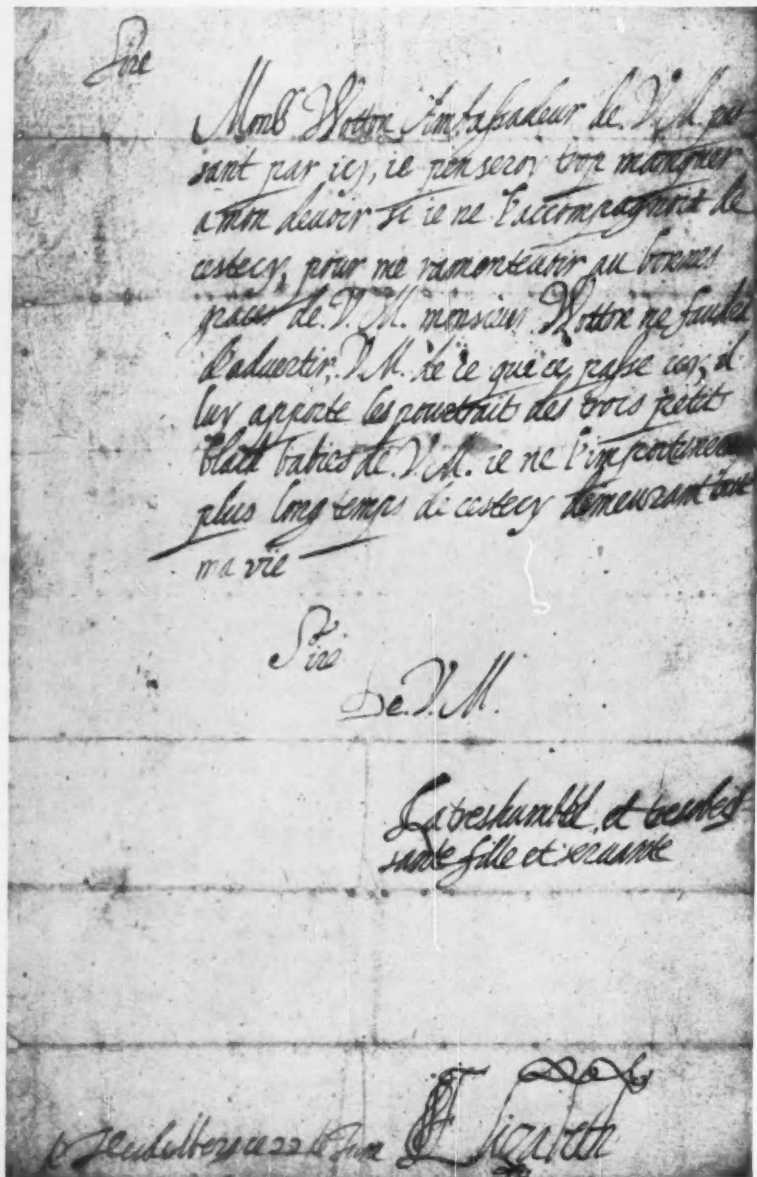 Sire
Monsr Wotton Ambassadeur de. V. M. pas
sant par icy, ie penseroy trop manquer
a mon devoir si ie ne l'accompagnoit de
cestecy, pour me ramentevoir au bonnes
graces de. V. M. monsieur Wotton ne faudra
d'advertir. V. M. de ce qui ce passe icy, il
luy apporte les pourtraits des trois petit
black babies de. V. M. ie ne l'importuneray
plus long temps de cestecy demeurant tout
ma vie
Sire
De. V. M.
La treshumble, et tresobeis-
sante fille et servante
Heidelberg ce 22 de Juin Elizabeth